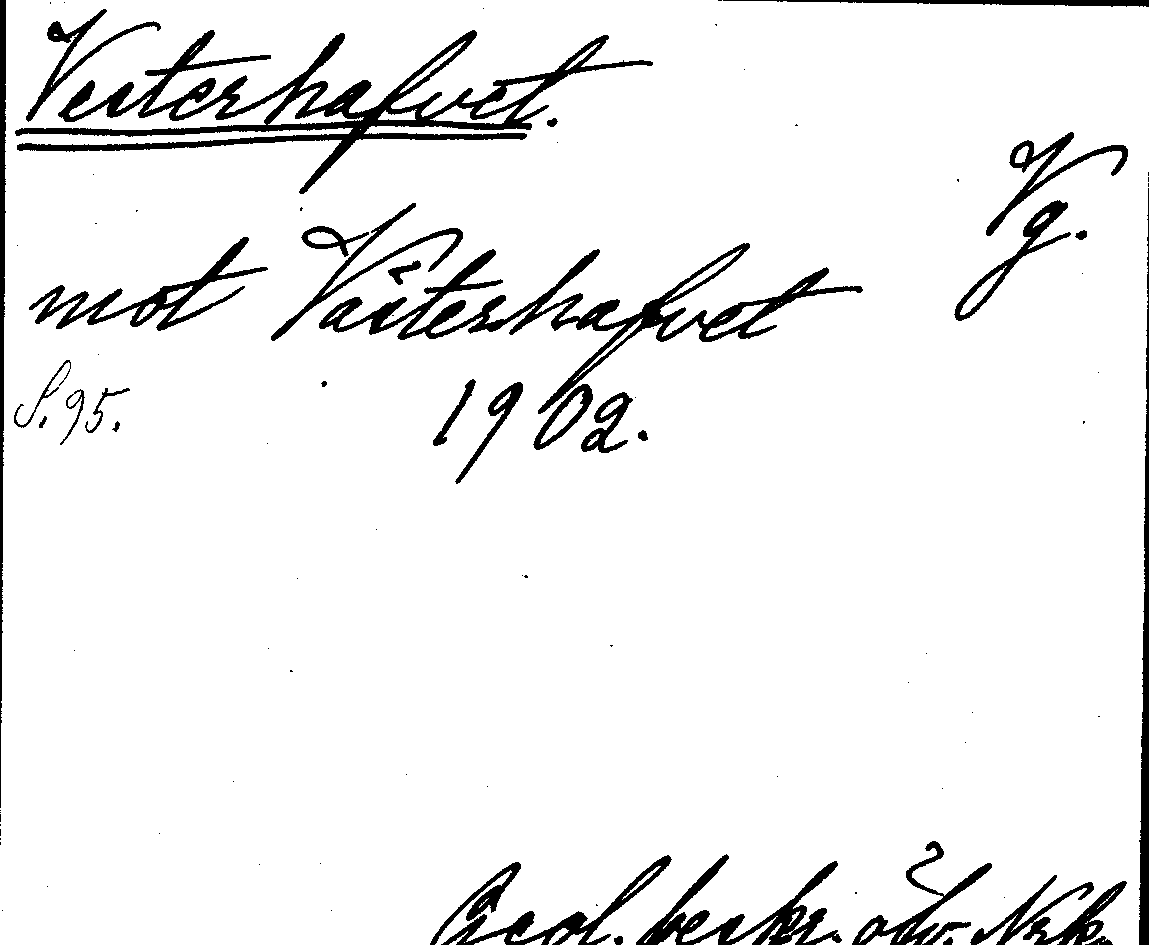 Vesterhafvet.
Vg.
mot Västerhafvet
S. 95. 1902.
Geol. beskr. öfv. Nrk.